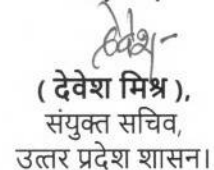 देवेश
( देवेश मिश्र ),
संयुक्त सचिव,
उत्तर प्रदेश शासन।